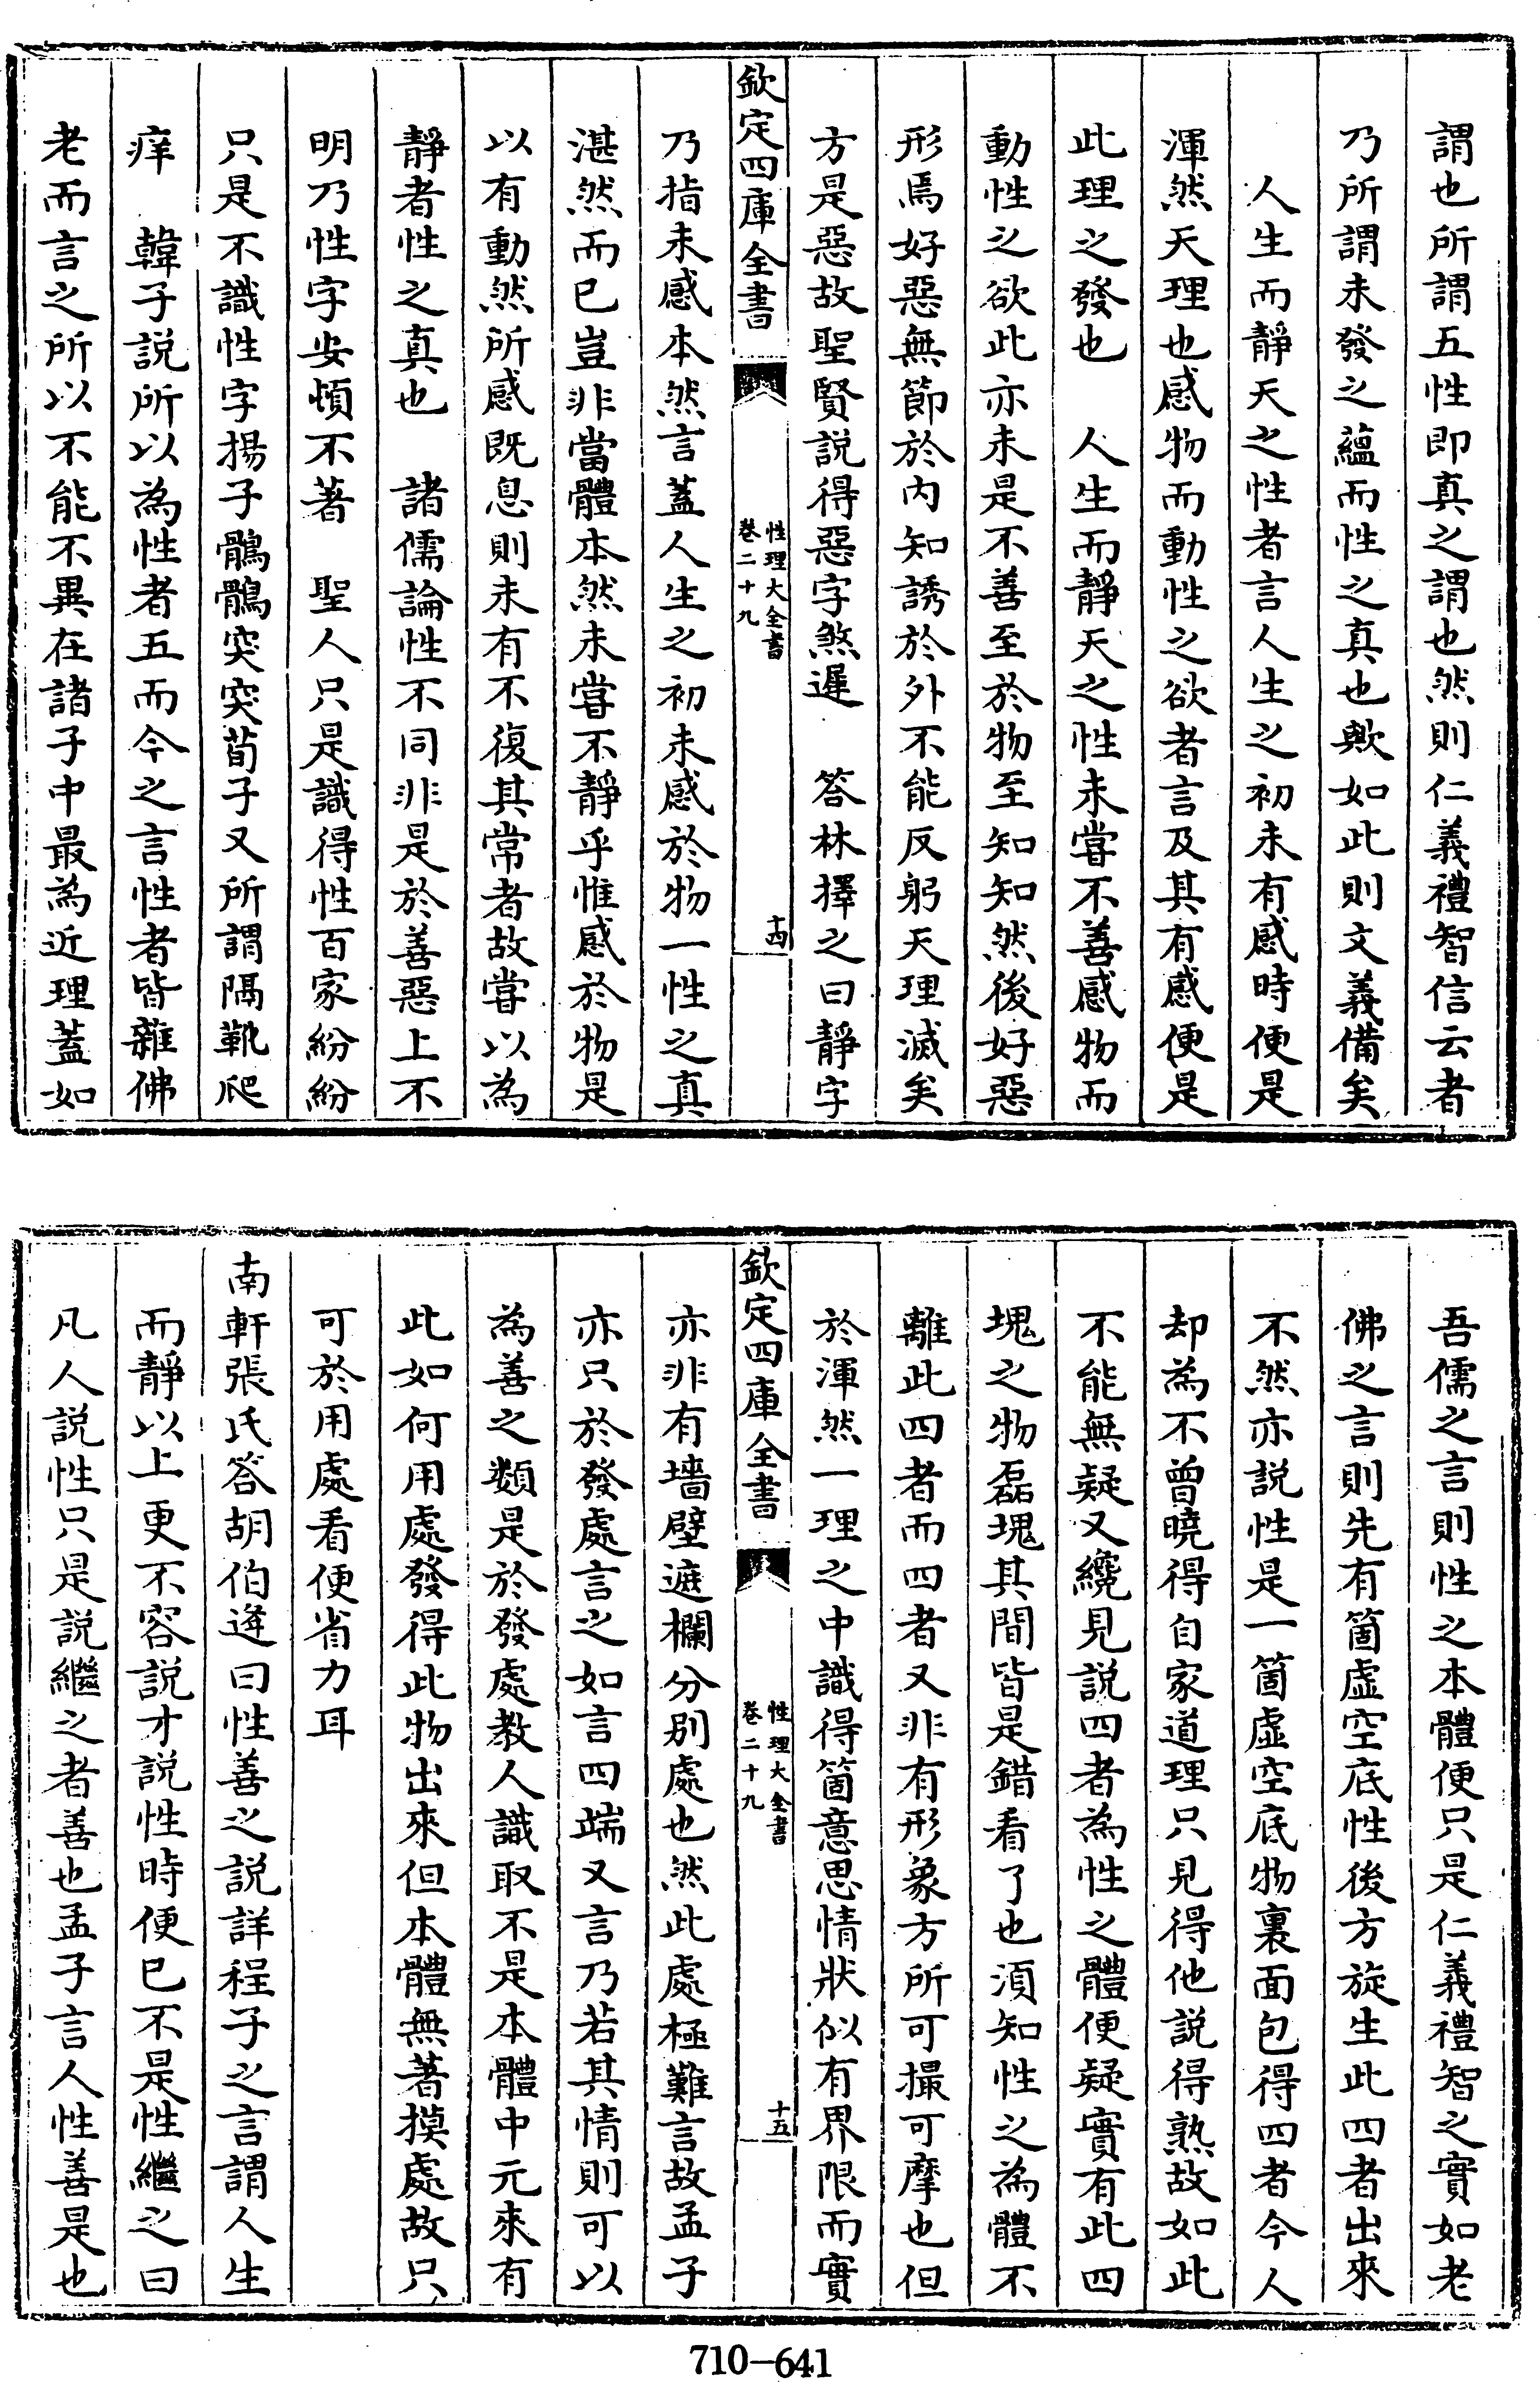 謂也所謂五性即真之謂也然則仁義禮智信云者
乃所謂未發之蘊而性之真也歟如此則文義備矣
人生而靜天之性者言人生之初未有感時便是
渾然天理也感物而動性之欲者言及其有感便是
此理之發也　人生而靜天之性未嘗不善感物而
動性之欲此亦未是不善至於物至知知然後好惡
形焉好惡無節於內知誘於外不能反躬天理滅矣
方是惡故聖賢説得惡字煞遲　答林擇之曰靜字
欽定四庫全書
性理大全書
卷二十九
十四
乃指未感本然言蓋人生之初未感於物一性之真
湛然而已豈非當體本然未嘗不靜乎惟感於物是
以有動然所感既息則未有不復其常者故嘗以為
靜者性之真也　諸儒論性不同非是於善惡上不
明乃性字安頓不著　聖人只是識得性百家紛紛
只是不識性字揚子鶻鶻突突荀子又所謂隔靴爬
痒　韓子説所以為性者五而今之言性者皆雜佛
老而言之所以不能不異在諸子中最為近理蓋如
吾儒之言則性之本體便只是仁義禮智之實如老
佛之言則先有箇虛空底性後方旋生此四者出來
不然亦説性是一箇虛空底物裏面包得四者今人
却為不曾曉得自家道理只見得他説得熟故如此
不能無疑又纔見説四者為性之體便疑實有此四
塊之物磊塊其間皆是錯看了也須知性之為體不
離此四者而四者又非有形象方所可撮可摩也但
於渾然一理之中識得箇意思情狀似有界限而實
欽定四庫全書
性理大全書
卷二十九
十五
亦非有墻壁遮欄分別處也然此處極難言故孟子
亦只於發處言之如言四端又言乃若其情則可以
為善之類是於發處教人識取不是本體中元來有
此如何用處發得此物出來但本體無著摸處故只
可於用處看便省力耳
南軒張氏答胡伯逢曰性善之説詳程子之言謂人生
而靜以上更不容説才説性時便已不是性繼之曰
凡人説性只是説繼之者善也孟子言人性善是也
710-641